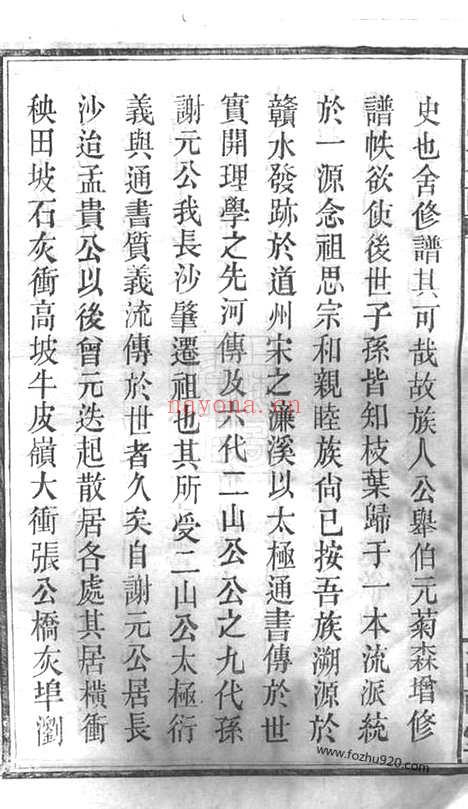 史也舍修譜其可哉故族人公舉伯元菊森增修
譜帙欲使後世子孫皆知枝葉歸于一本流派統
於一源念祖思宗和親睦族尚已按吾族溯源於
贛水發跡於道州宋之濂溪以太極通書傳於世
實開理學之先河傳及六代二山公公之九代孫
謝元公我長沙肇遷祖也其所受二山公太極衍
義與通書質義流傳於世者久矣自謝元公居長
沙迨孟貴公以後曾元迭起散居各處其居橫衝
秧田坡石灰衝高坡牛皮嶺大衝張公橋灰埠瀏
nayona.cn
www.fozhu920.com